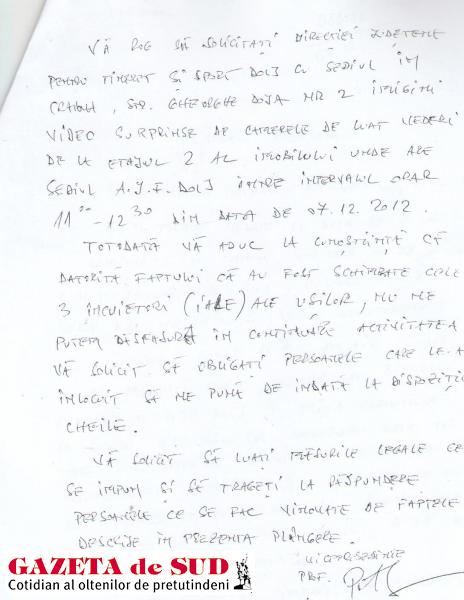 VĂ ROG SĂ SOLICITAȚI DIRECȚIEI JUDEȚENE
PENTRU TINERET ȘI SPORT DOLJ CU SEDIUL ÎN
CRAIOVA, STR. GHEORGHE DOJA NR 2 IMAGINI
VIDEO SURPRINSE DE CAMERELE DE LUAT VEDERI
DE LA ETAJUL 2 AL IMOBILULUI UNDE ARE
SEDIUL A.J.F. DOLJ ÎNTRE INTERVALUL ORAR
11⁰⁰-12³⁰ DIN DATA DE 07.12.2012.
TOTODATĂ VĂ ADUC LA CUNOȘTIINȚĂ CĂ
DATORITĂ FAPTULUI CĂ AU FOST SCHIMBATE CELE
3 ÎNCUIETORI (IALE) ALE UȘILOR, NU NE
PUTEM DESFĂȘURA ÎN CONTINUARE ACTIVITATEA
VĂ SOLICIT SĂ OBLIGAȚI PERSOANELE CARE LE-A
ÎNLOCUIT SĂ NE PUNĂ DE ÎNDATĂ LA DISPOZIȚI
CHEILE.
VĂ SOLICIT SĂ LUAȚI MĂSURILE LEGALE CE
SE IMPUN ȘI SĂ TRAGEȚI LA RĂSPUNDERE
PERSOANELE CE SE FAC VINOVATE DE FAPTELE
DESCRISE ÎN PREZENTA PLÂNGERE.
VICEPREȘEDINTE
PROF.
GAZETA de SUD
Cotidian al oltenilor de pretutindeni